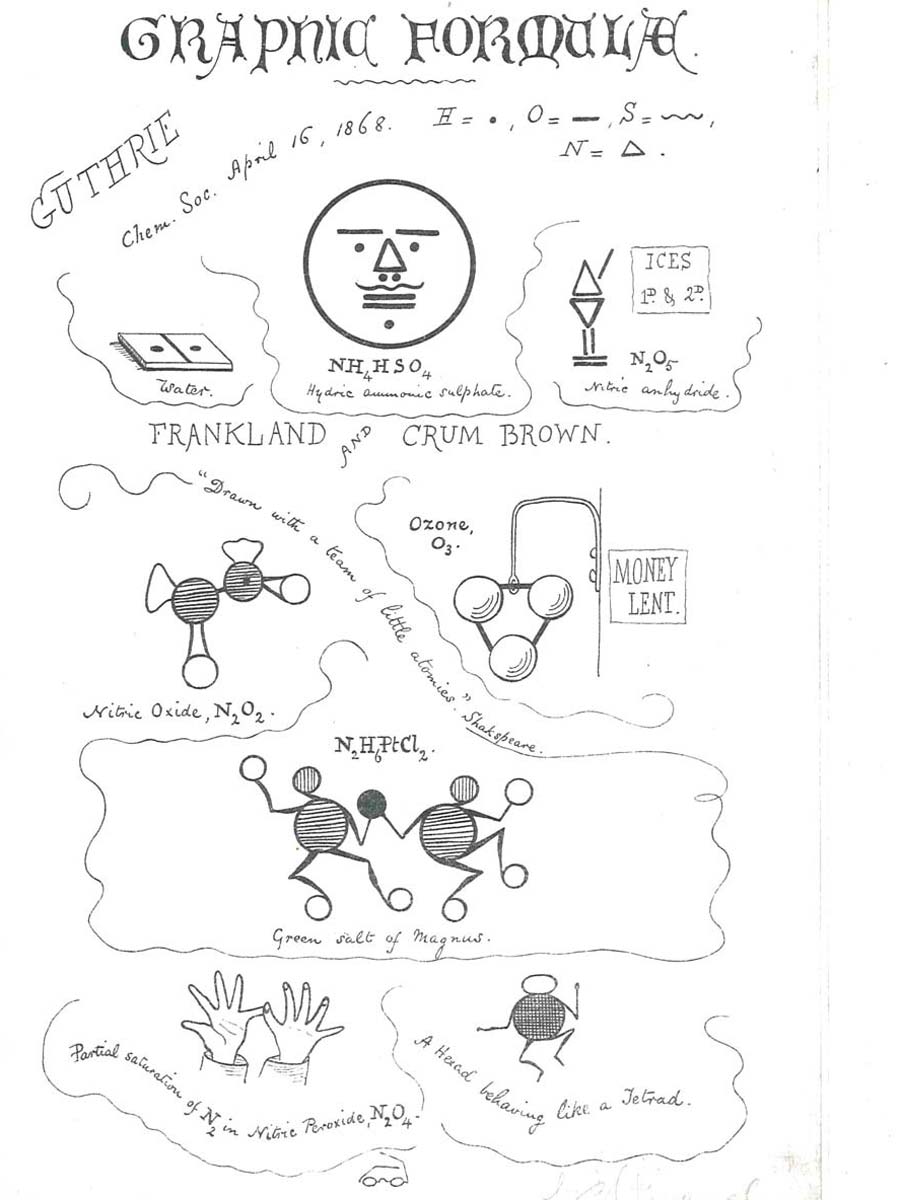 GRAPHIC FORMULÆ.
GUTHRIE
Chem. Soc. April 16, 1868.
H = • , O = — , S = ~~ ,
N = Δ .
ICES
1D. & 2D.
Water.
NH4HSO4
Hydric ammonic sulphate.
N2O5
Nitric anhydride.
FRANKLAND AND CRUM BROWN.
"Drawn with a team of little atomies." Shakspeare.
Ozone,
O3.
MONEY
LENT.
Nitric Oxide, N2O2.
N2H6PtCl2.
Green salt of Magnus.
Partial saturation of N2 in Nitric Peroxide, N2O4.
A Hexad behaving like a Tetrad.